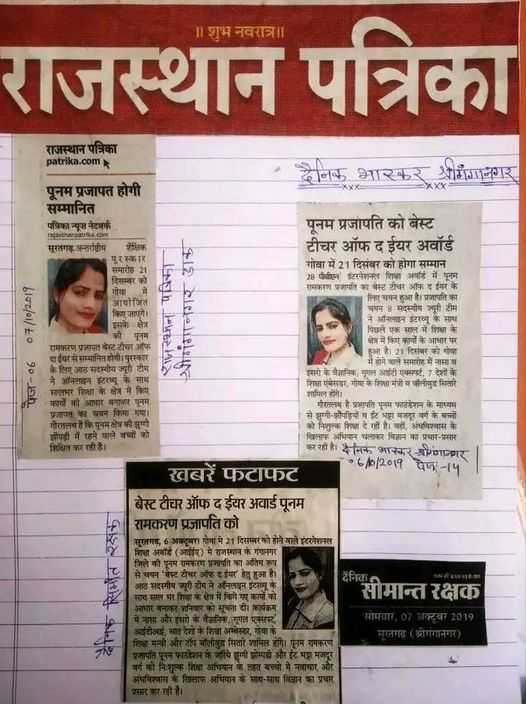 ॥ शुभ नवरात्र॥
राजस्थान पत्रिका
राजस्थान पत्रिका
patrika.com
पूनम प्रजापत होगी
सम्मानित
पत्रिका न्यूज नेटवर्क
rajasthanpatrika.com
सूरतगढ़. अन्तर्राष्ट्रीय शैक्षिक
पुरस्कार
समारोह 21
दिसम्बर को
गोवा में
आयोजित
किए जाएंगे।
इसके क्षेत्र
की पूनम
रामकरण प्रजापत बेस्ट टीचर ऑफ
द ईयर से सम्मानित होगी। पुरस्कार
के लिए आठ सदस्यीय ज्यूरी टीम
ने ऑनलाइन इंटरव्यू के साथ
सालभर शिक्षा के क्षेत्र में किये
कार्यों को आधार बनाकर पूनम
प्रजापत का चयन किया गया।
गौरतलब है कि पूनम क्षेत्र की झुग्गी
झोंपड़ी में रहने वाले बच्चों को
शिक्षित कर रही हैं।
पेज-०6 07/10/2019
राजस्थान पत्रिका
श्रीगंगानगर डाक
दैनिक भास्कर श्रीगंगानगर
xxx xxx
पूनम प्रजापति को बेस्ट
टीचर ऑफ द ईयर अवॉर्ड
गोवा में 21 दिसंबर को होगा सम्मान
इंटरनेशनल शिक्षा अवॉर्ड में पूनम
रामकरण प्रजापति का बेस्ट टीचर ऑफ द ईयर के
लिए चयन हुआ है। प्रजापति का
चयन 8 सदस्यीय ज्यूरी टीम
ने ऑनलाइन इंटरव्यू के साथ
पिछले एक साल में शिक्षा के
क्षेत्र में किए कार्यों के आधार पर
हुआ है। 21 दिसंबर को गोवा
में होने वाले समारोह में नासा व
इसरो के वैज्ञानिक, गूगल आईटी एक्सपर्ट, 7 देशों के
शिक्षा एंबेसडर, गोवा के शिक्षा मंत्री व बॉलीवुड सितारे
शामिल होंगे।
गौरतलब है प्रजापति पूनम फाउंडेशन के माध्यम
से झुग्गी-झोंपड़ियों व ईंट भट्ठा मजदूर वर्ग के बच्चों
को निशुल्क शिक्षा दे रही हैं। वहीं, अंधविश्वास के
खिलाफ अभियान चलाकर विज्ञान का प्रचार-प्रसार
कर रही है।
दैनिक भास्कर-श्रीगंगानगर
०6/10/2019 पेज-14
खबरें फटाफट
बेस्ट टीचर ऑफ द ईयर अवार्ड पूनम
रामकरण प्रजापति को
सूरतगढ़, 6 अक्टूबर। गोवा में 21 दिसम्बर को होने वाले इंटरनेशनल
शिक्षा अवॉर्ड (आईईए) में राजस्थान के गंगानगर
जिले की पूनम रामकरण प्रजापति का अंतिम रूप
से चयन 'बेस्ट टीचर ऑफ द ईयर' हेतु हुआ है।
आठ सदस्यीय ज्यूरी टीम ने ऑनलाइन इंटरव्यू के
साथ साल भर शिक्षा के क्षेत्र में किये गए कार्यों को
आधार बनाकर शनिवार को सूचना दी। कार्यक्रम
में नासा और इसरो के वैज्ञानिक, गूगल एक्सपर्ट,
आईटीआई, सात देशों के शिक्षा अम्बेसडर, गोवा के
शिक्षा मन्त्री और टॉप बॉलीवुड सितारे शामिल होंगे। पूनम रामकरण
प्रजापति पूनम फाउंडेशन के जरिये झुग्गी झोंपड़ी और ईंट भट्ठा मजदूर
वर्ग की निःशुल्क शिक्षा अभियान के तहत बच्चों में नवाचार और
अंधविश्वास के खिलाफ अभियान के साथ-साथ विज्ञान का प्रचार
प्रसार कर रही है।
दैनिक सिमांत रक्षक
दैनिक
सीमान्त रक्षक
सोमवार, 07 अक्टूबर 2019
सूरतगढ़ (श्रीगंगानगर)